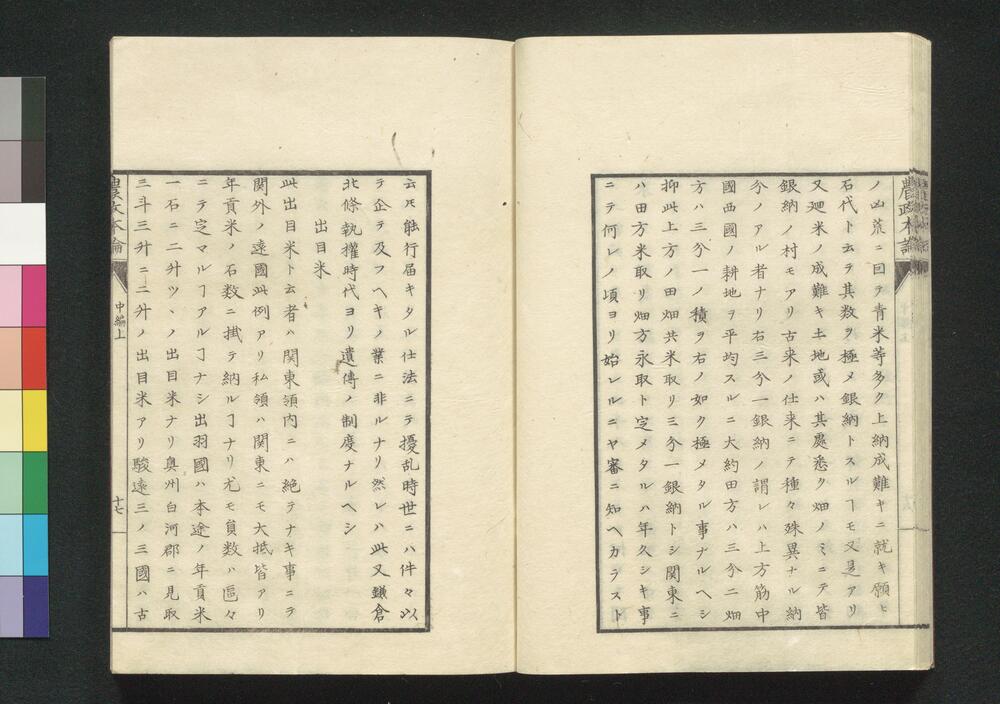 農政本論
ノ凶荒ニ回テ青米等多ク上納成難キニ就キ願ヒ
石代ト云テ其数ヲ極メ銀納トスルヿモ又是アリ
又廻米ノ成難キ土地或ハ其處悉ク畑ノミニテ皆
銀納ノ村モアリ古来ノ仕来ニテ種々殊異ナル納
分ノアル者ナリ右三分一銀納ノ謂レハ上方筋中
國西國ノ耕地ヲ平均スルニ大約田方ハ三分二畑
方ハ三分一ノ積ヲ右ノ如ク極メタル事ナルヘシ
抑此上方ノ田畑共米取リ三分一銀納トシ関東ニ
ハ田方米取リ畑方永取ト定メタルハ年久シキ事
ニテ何レノ頃ヨリ始レルニヤ審ニ知ヘカラスト
云𪜈能行届キタル仕法ニテ擾乱時世ニハ件々以
テ企テ及フヘキノ業ニ非ルナリ然レハ此又鎌倉
北條執權時代ヨリ遺傳ノ制度ナルヘシ
出目米
此出目米ト云者ハ関東領内ニハ絶テナキ事ニテ
関外ノ遠國此例アリ私領ハ関東ニモ大抵皆アリ
年貢米ノ石数ニ掛テ納ルヿナリ尤モ員数ハ區々
ニテ定マルヿアルヿナシ出羽國ハ本途ノ年貢米
一石ニ二升ツヽノ出目米ナリ奥州白河郡ニ見取
三斗三升ニ二升ノ出目米アリ駿遠三ノ三國ハ古
農政本論
中編上
十七